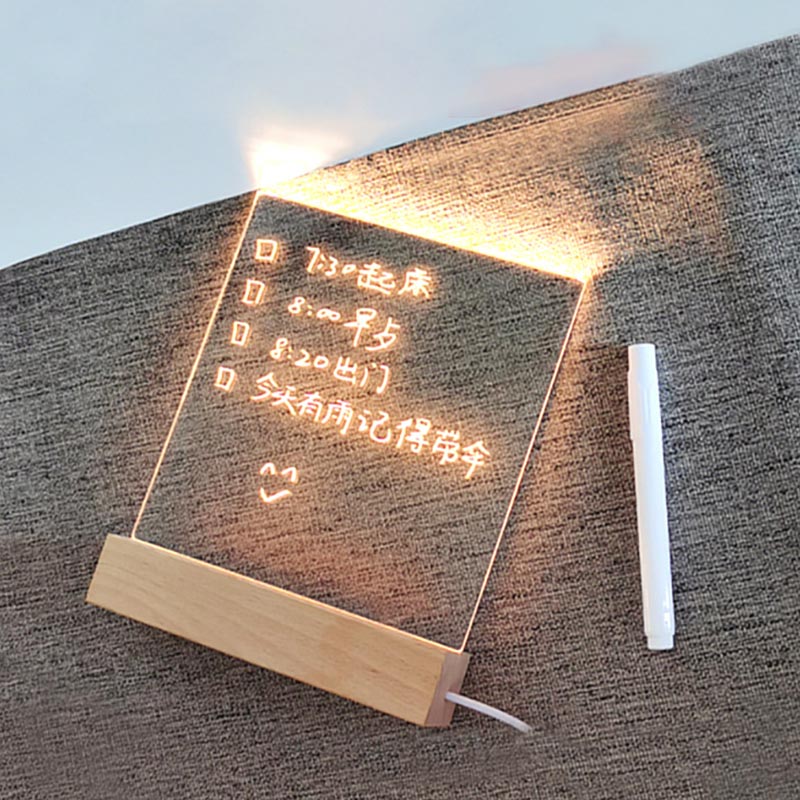 7:30起床
8:00早点
8:20出门
今天有雨记得带伞